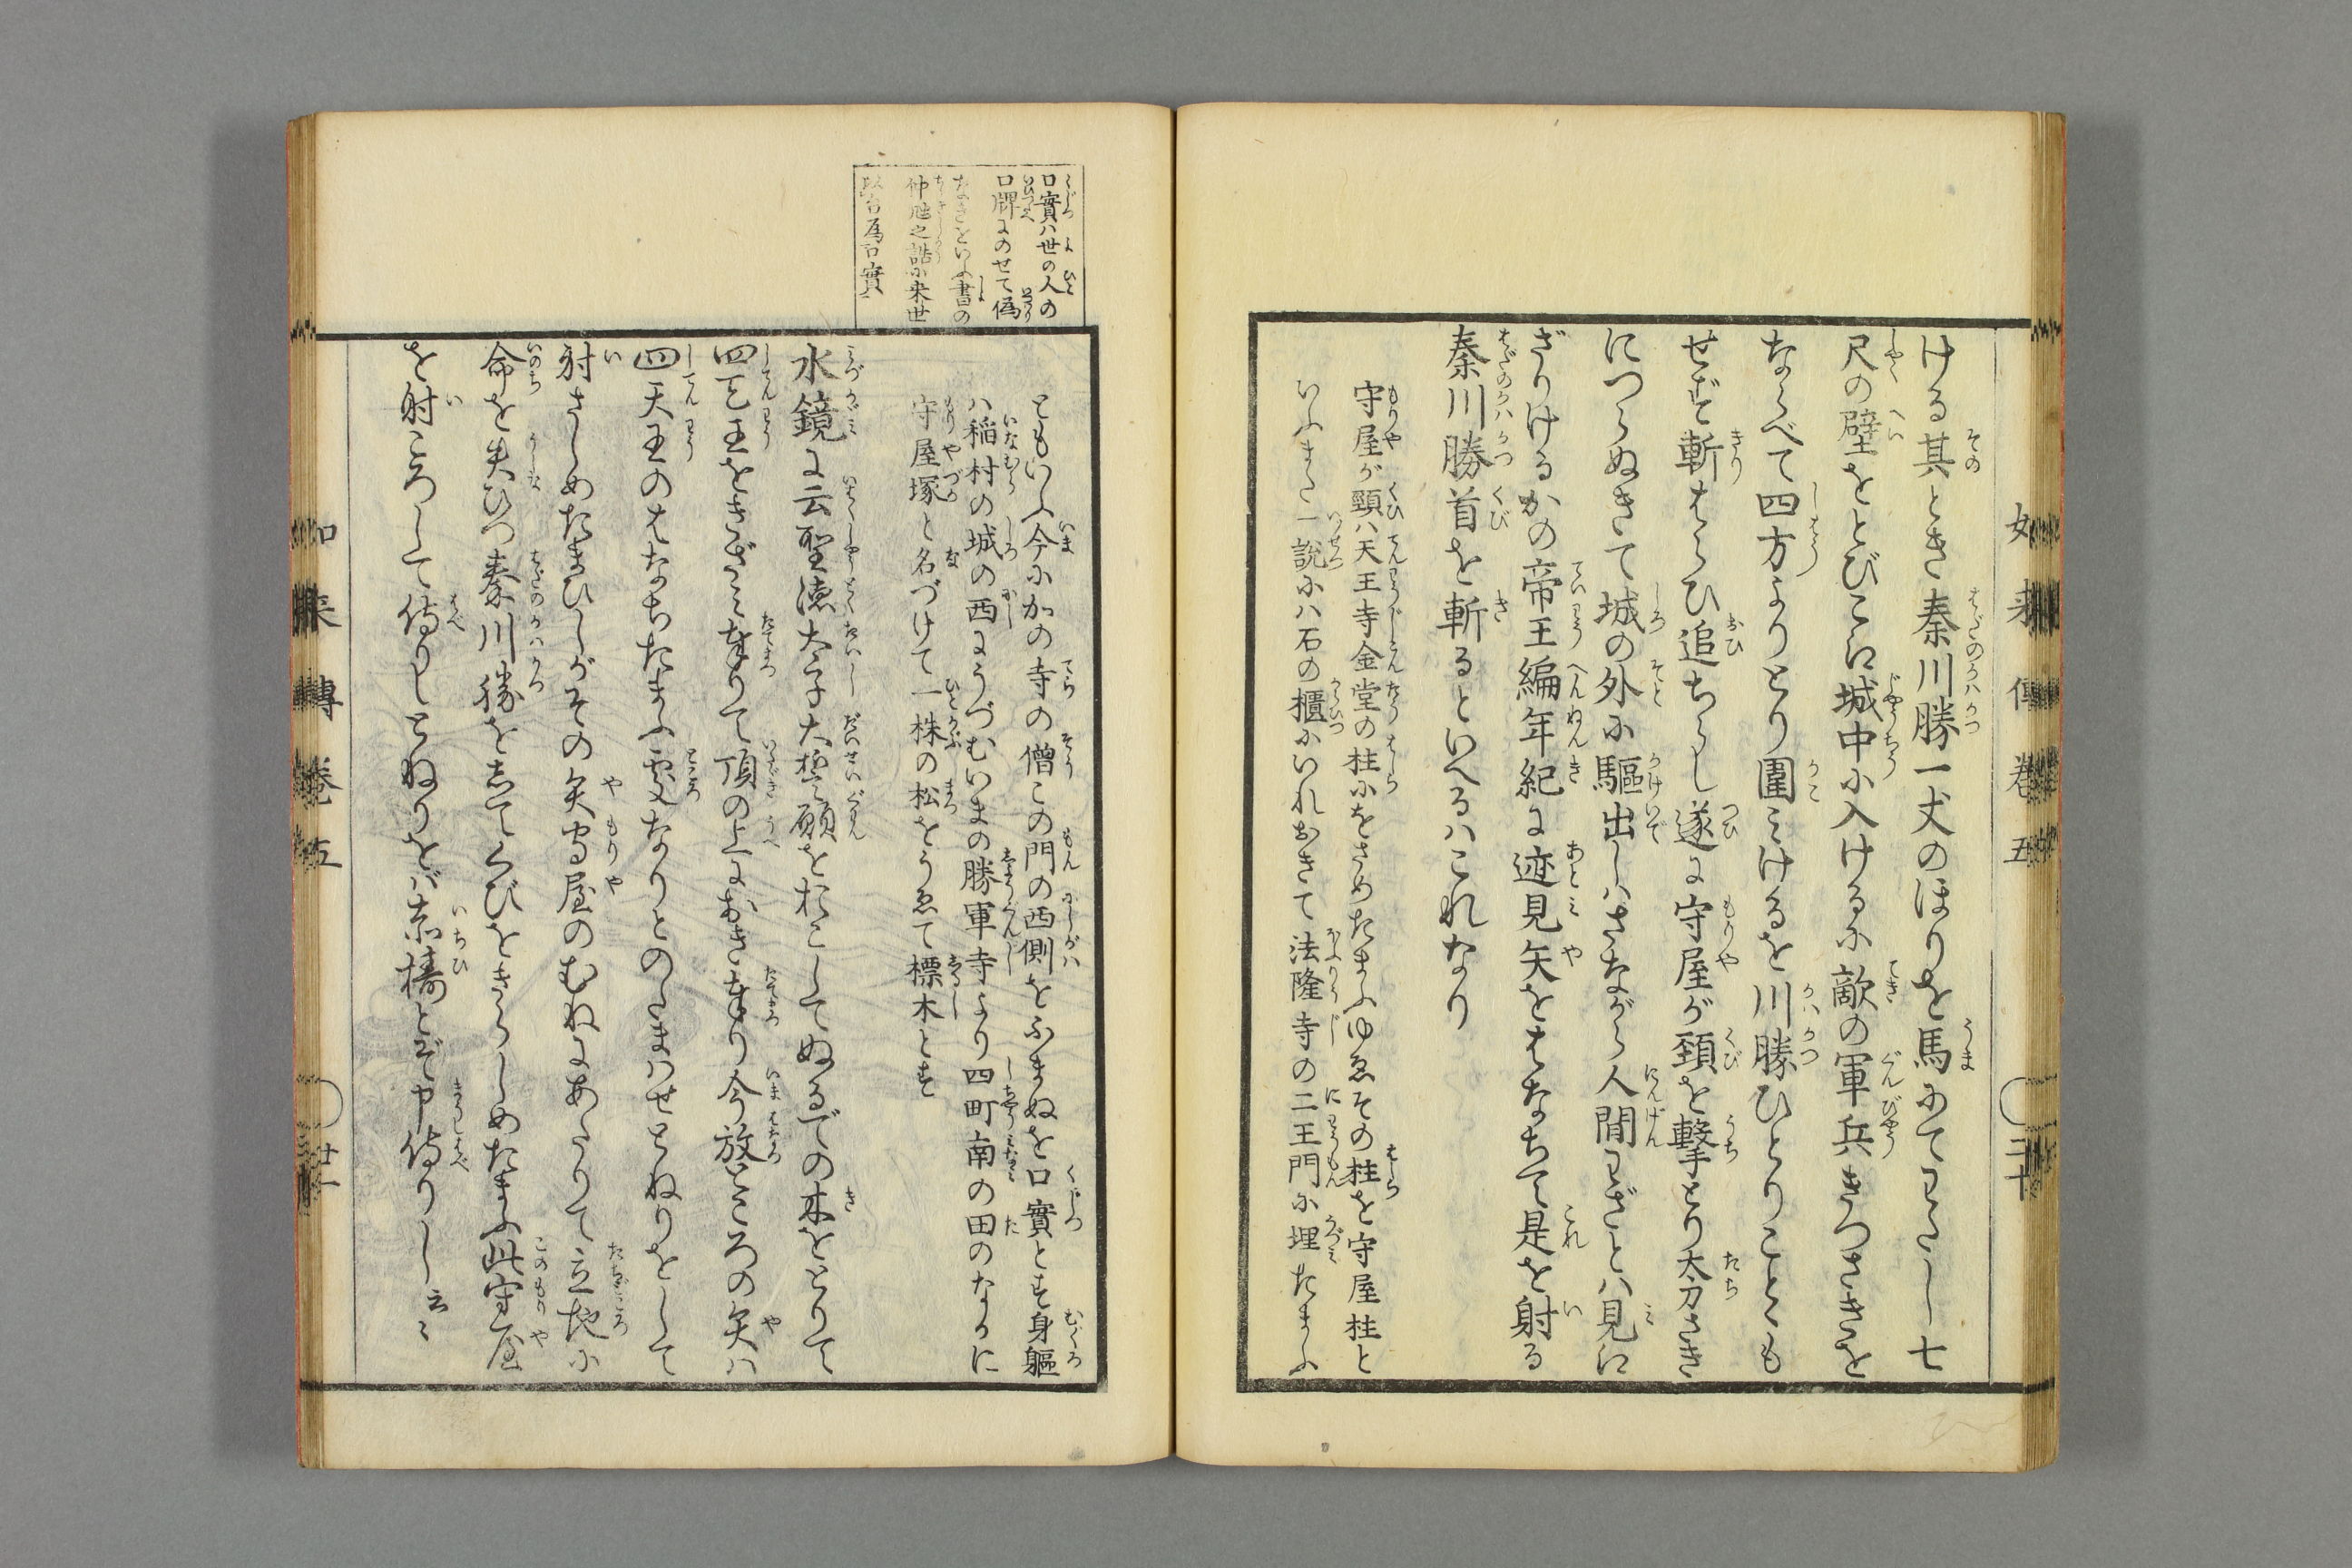 如来傳巻五
三十
ける其とき秦川勝一丈のほりを馬にてわたし七
尺の壁をとびこえ城中に入けるに敵の軍兵きつさきを
ならべて四方よりとり圍みけるを川勝ひとりことゝも
せず斬はらひ追ちらし遂に守屋が頚を撃とり太刀さき
につらぬきて城の外に驅出しハさながら人間わざとハ見え
ざりけるかの帝王編年紀に迹見矢をはなちて是を射る
秦川勝首を斬るといへるハこれなり
守屋が頸ハ天王寺金堂の柱にをさめたまふゆゑその柱を守屋柱と
いふまた一説にハ石の櫃にいれおきて法隆寺の二王門に埋たまふ
口實ハ世の人の
口牌にのせて偽
なきをいふ書の
仲虺之誥に来世
以台為口實
ともいふ今にかの寺の僧この門の西側をふまぬを口實とす身軀
ハ稲村の城の西にうづむいまの勝軍寺より四町南の田のなかに
守屋塚と名づけて一株の松をうゑて標木とす
水鏡に云聖徳太子大誓願をおこしてぬるでの木をとりて
四天王をきざミ奉りて頂の上におき奉り今放ところの矢ハ
四天王のはなちたまふ處なりとのたまハせとねりをして
射さしめたまひしがその矢守屋のむねにあたりて立地に
命を失ひつ秦川勝を志てくびをきらしめたまふ此守屋
を射ころして侍りしとねりをバ赤檮とぞ申侍りし云ゝ
如来傳巻五
廿一